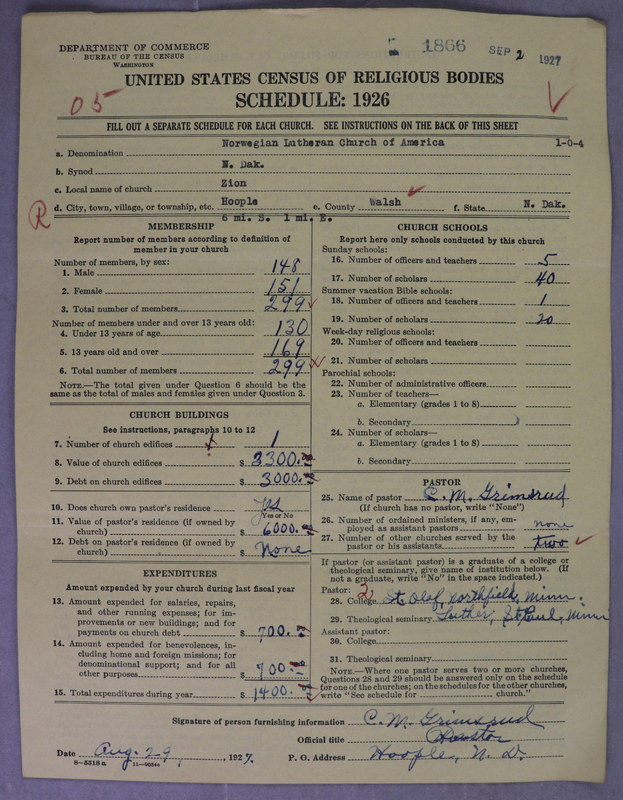 DEPARTMENT OF COMMERCE
BUREAU OF THE CENSUS
WASHINGTON
1866 SEP 2 1927
UNITED STATES CENSUS OF RELIGIOUS BODIES
05
SCHEDULE: 1926
FILL OUT A SEPARATE SCHEDULE FOR EACH CHURCH. SEE INSTRUCTIONS ON THE BACK OF THIS SHEET
a. Denomination Norwegian Lutheran Church of America 1-0-4
b. Synod N. Dak.
c. Local name of church Zion
d. City, town, village, or township, etc. Hoople e. County Walsh f. State N. Dak.
R
6 mi. S. 1 mi. E.
MEMBERSHIP
Report number of members according to definition of member in your church
Number of members, by sex:
1. Male 148
2. Female 151
3. Total number of members 299
Number of members under and over 13 years old:
4. Under 13 years of age 130
5. 13 years old and over 169
6. Total number of members 299
NOTE.—The total given under Question 6 should be the
same as the total of males and females given under Question 3.
CHURCH BUILDINGS
See instructions, paragraphs 10 to 12
7. Number of church edifices 1
8. Value of church edifices $ 3300.
9. Debt on church edifices $ 3000.
10. Does church own pastor's residence yes
Yes or No
11. Value of pastor's residence (if owned by
church) $ 6000.
12. Debt on pastor's residence (if owned by
church) $ None
EXPENDITURES
Amount expended by your church during last fiscal year
13. Amount expended for salaries, repairs,
and other running expenses; for im-
provements or new buildings; and for
payments on church debt $ 700.
14. Amount expended for benevolences, in-
cluding home and foreign missions; for
denominational support; and for all
other purposes $ 700
15. Total expenditures during year $ 1400.
CHURCH SCHOOLS
Report here only schools conducted by this church
Sunday schools:
16. Number of officers and teachers 5
17. Number of scholars 40
Summer vacation Bible schools:
18. Number of officers and teachers 1
19. Number of scholars 20
Week-day religious schools:
20. Number of officers and teachers
21. Number of scholars
Parochial schools:
22. Number of administrative officers
23. Number of teachers—
a. Elementary (grades 1 to 8)
b. Secondary
24. Number of scholars—
a. Elementary (grades 1 to 8)
b. Secondary
PASTOR
25. Name of pastor C. M. Grimsrud
(If church has no pastor, write "None")
26. Number of ordained ministers, if any, em-
ployed as assistant pastors none
27. Number of other churches served by the
pastor or his assistants two
If pastor (or assistant pastor) is a graduate of a college or
theological seminary, give name of institution below. (If
not a graduate, write "No" in the space indicated.)
Pastor: 2
28. College St. Olaf, Northfield, Minn.
29. Theological seminary Luther, St. Paul, Minn
Assistant pastor:
30. College
31. Theological seminary
NOTE.—Where one pastor serves two or more churches,
Questions 28 and 29 should be answered only on the schedule
for one of the churches; on the schedules for the other churches,
write "See schedule for church."
Signature of person furnishing information C. M. Grimsrud
Official title Pastor
Date Aug. 29, , 1927. P. O. Address Hoople, N. D.
8—5518 a 11—9604a